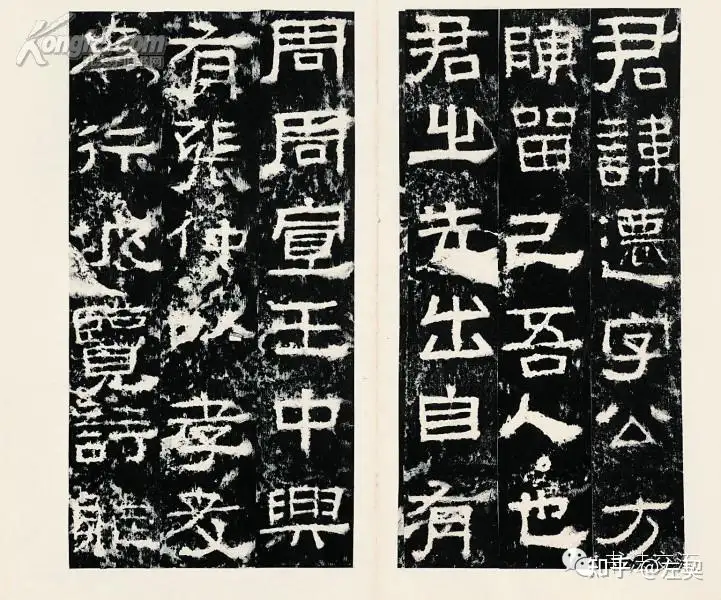 君諱遷字公方
陳留己吾人也
君之先出自有
周周宣王中興
有張仲以孝友
為行披覽詩雅
Kongfz.com
知乎 @左契